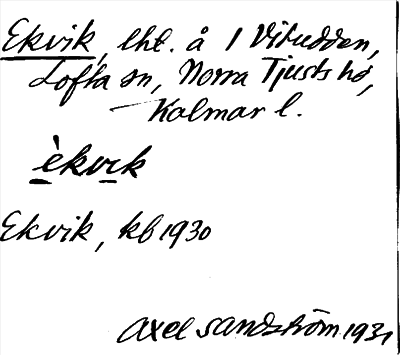 Ekvik, lht. å 1 Vibudden,
Lofta sn, Norra Tjusts hd,
Kalmar l.
èkvik
Ekvik, kb 1930
Axel Sandström 1931